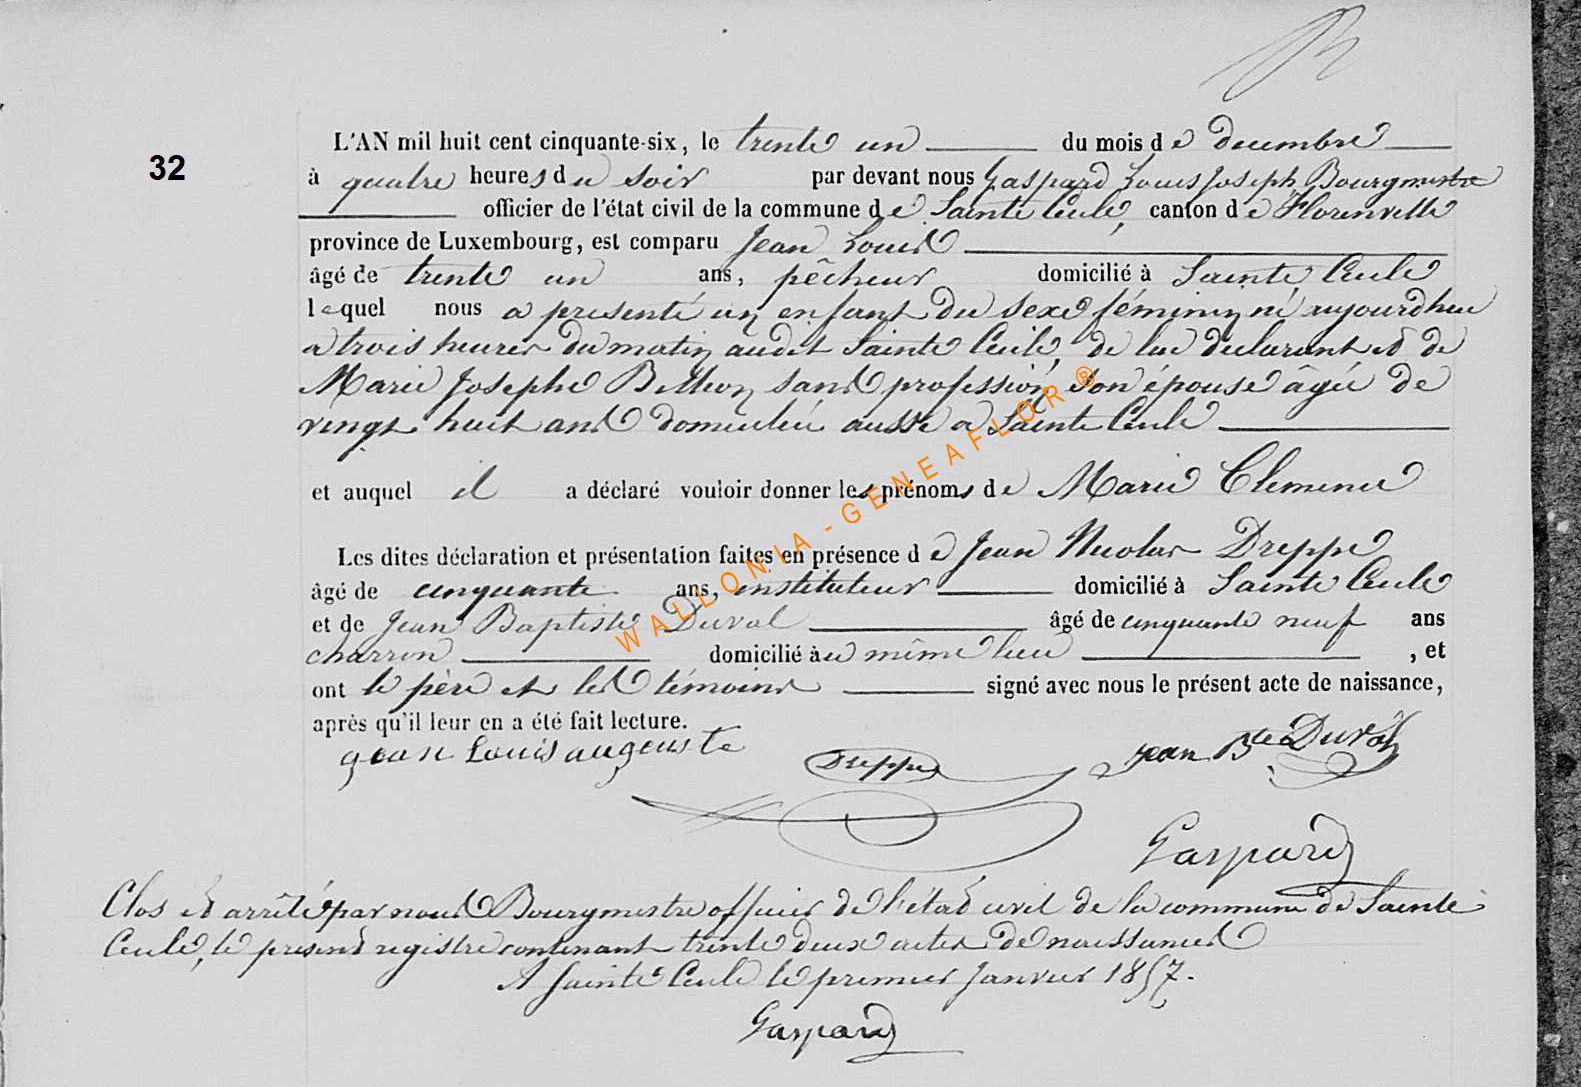 32
L'AN mil huit cent cinquante-six, le trente un du mois de decembre
à quatre heures du soir par devant nous Gaspard Louis Joseph Bourgmestre
officier de l'état civil de la commune de Sainte Cecile, canton de Florenville
province de Luxembourg, est comparu Jean Louis
âgé de trente un ans, pêcheur domicilié à Sainte Cecile
lequel nous a presenté un enfant du sexe féminin né aujourdhui
a trois heures du matin audit Sainte Cecile, de lui declarant et de
Marie Josephe Bilheon sans profession son épouse âgée de
vingt huit ans domiciliée aussi a Sainte Cecile
et auquel il a déclaré vouloir donner les prénoms de Marie Clemence
Les dites déclaration et présentation faites en présence de Jean Nicolas Dreppe
âgé de cinquante ans, instituteur domicilié à Sainte Cecile
et de Jean Baptiste Duval âgé de cinquante neuf ans
charron domicilié au même lieu , et
ont le père et les témoins signé avec nous le présent acte de naissance,
après qu'il leur en a été fait lecture.
Jean Louis auguste
Dreppe
Jean Bte Duval
Gaspard
Clos et arrêté par nous Bourgmestre officier de l'état civil de la commune de Sainte
Cecile, le present registre contenant trente deux actes de naissances
A Sainte Cecile le premier Janvier 1857.
Gaspard
WALLONIA - GENEAFLOR ®